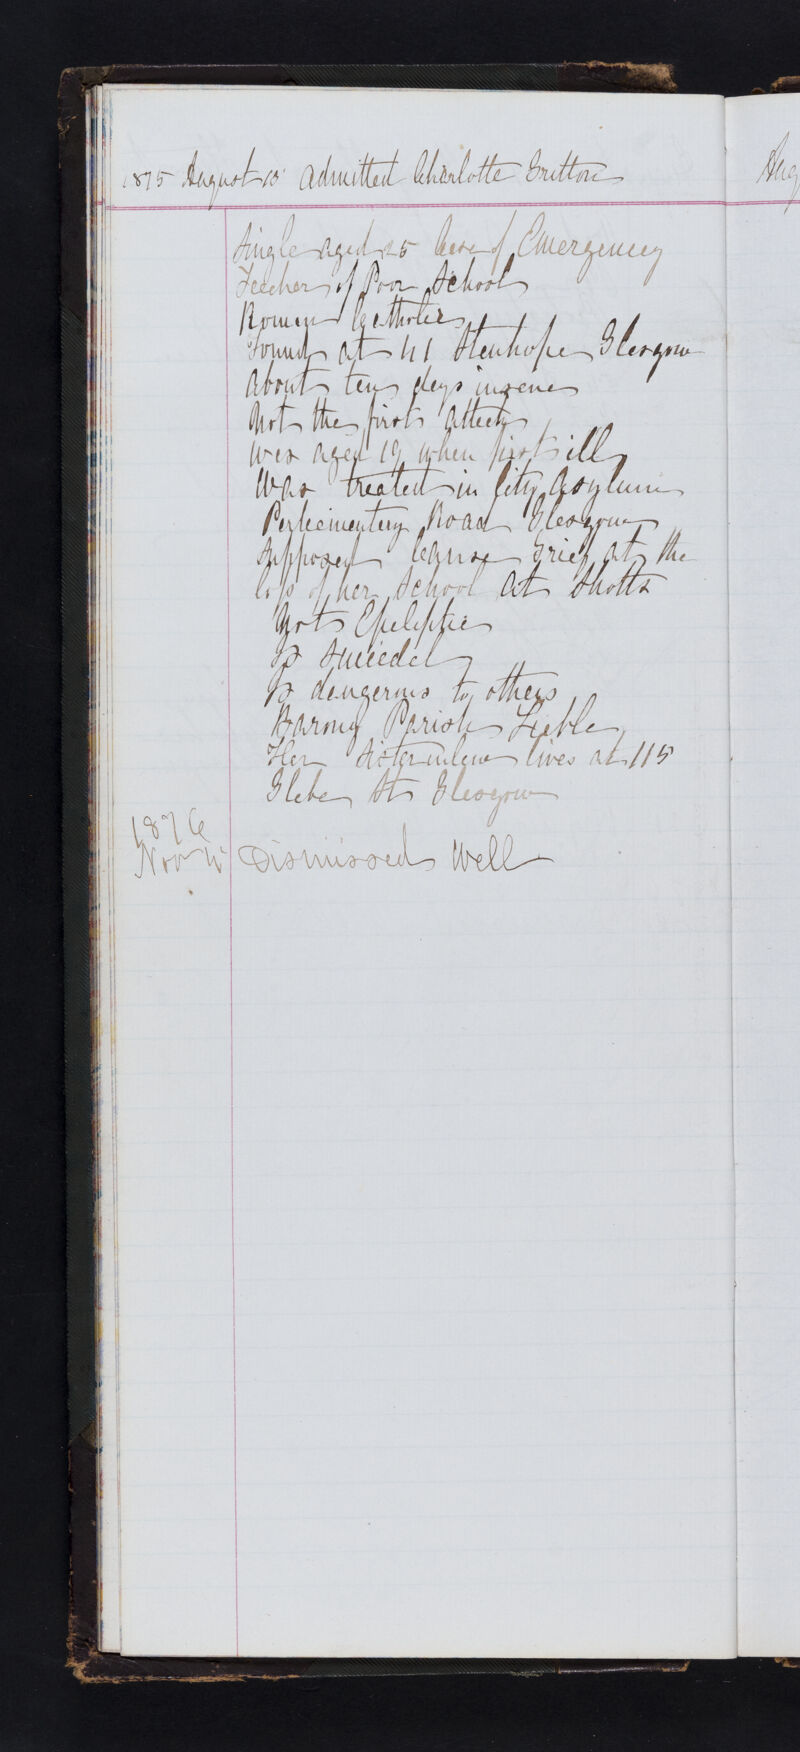 1875 August 10 Admitted Charlotte Gritton
Aug
Single aged 25 Case of Emergency
Teacher of Poor School
Roman Catholic
Found at 41 Stanhope Glasgow
About ten days insane
Not the first attack
was aged 19 when first ill
Was treated in City Asylum
Parliamentary Road Glasgow
Supposed Cause Grief at the
loss of her School at Shotts
Not Epileptic
Is Suicidal
Is dangerous to others
Barony Parish Liable
Her Sister inlaw lives at 115
Glebe St Glasgow
1876
Nov Dismissed Well